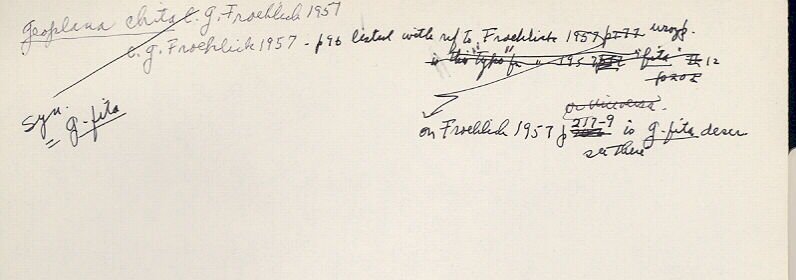 Geoplana chita E. g. Froehlich 1957
E. g. Froehlich 1957 - p96 listed with ref to Froehlich 1957 p217 wrong.
is this "typo" for " 1957 "fita" 12
p202
Syn.
g-fita
or vice versa.
on Froehlich 1957 p 217-9 is g-fita descr
see there